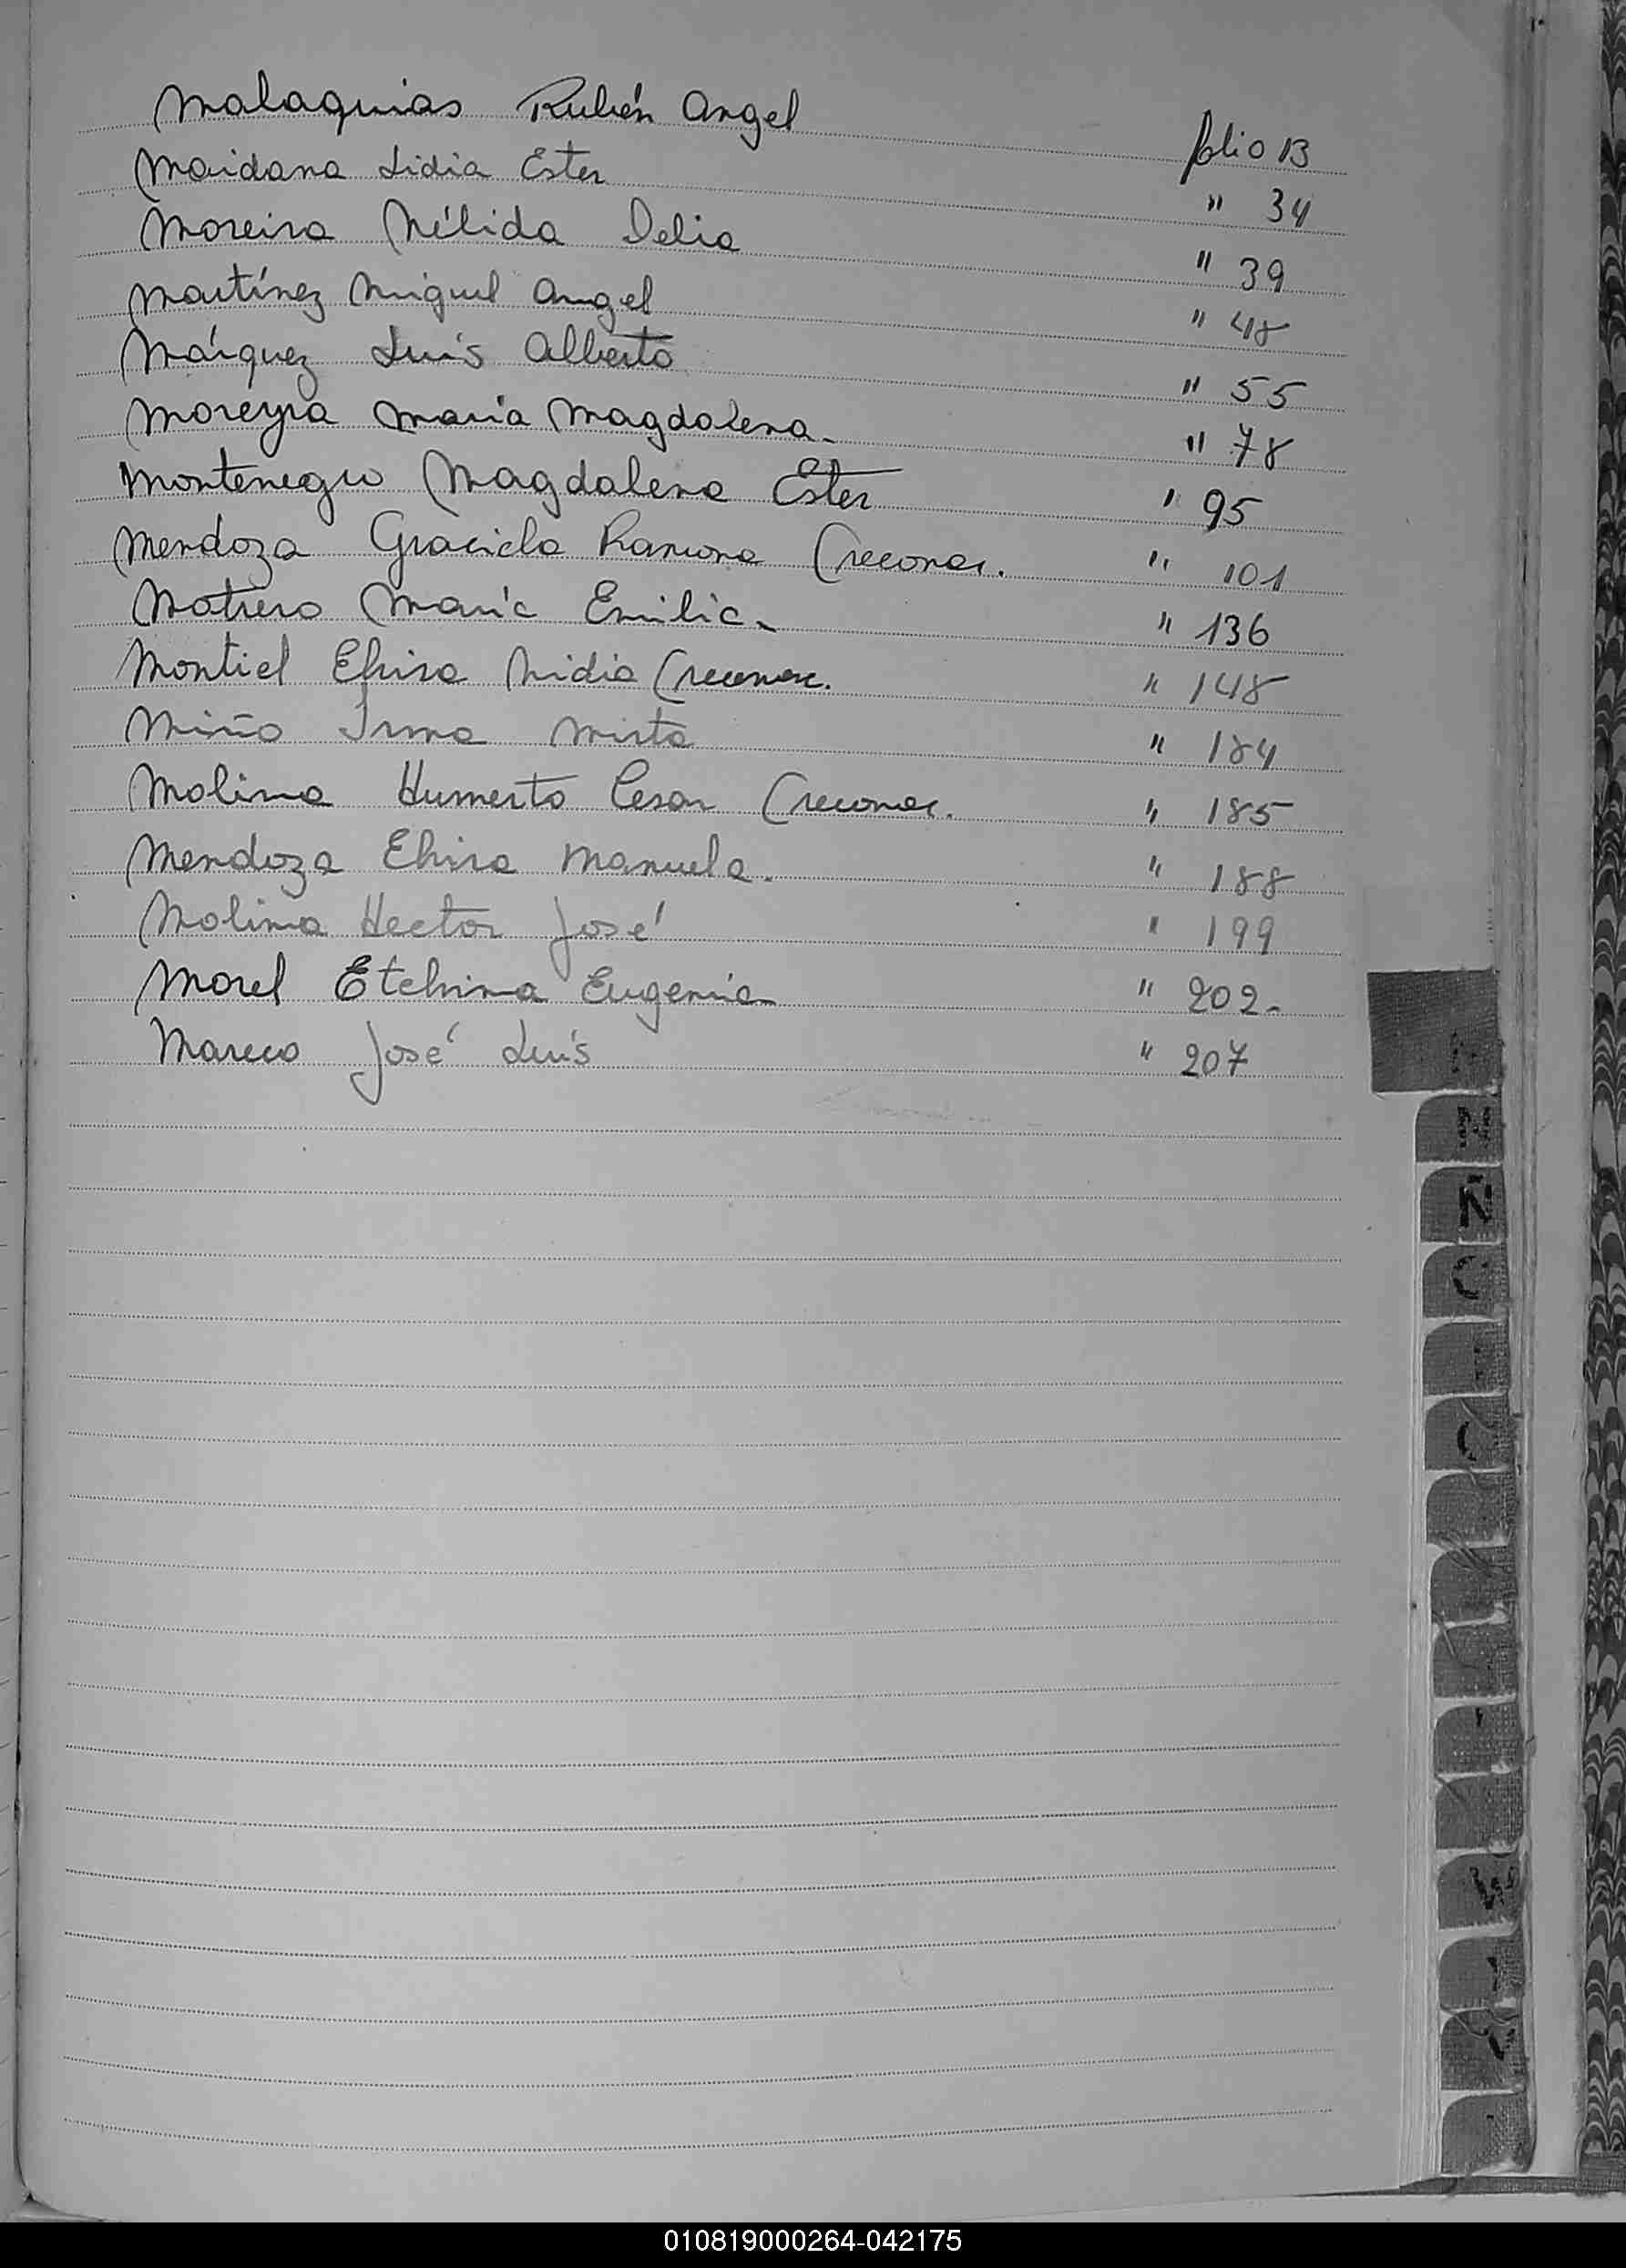 Malaquias Rubén Angel folio 13
Maidana Lidia Ester " 34
Moreira Nélida Delia " 39
Martínez Miguel Angel " 48
Márquez Luís Alberto " 55
Moreyra Maria Magdalena. " 78
Montenegro Magdalena Ester " 95
Mendoza Graciela Ramona (reconoc. " 101
Motrero María Emilia. " 136
Montiel Elvira Nidia (reconoc. " 148
Miño Irma Mirta " 184
Molina Humerto Cesar (reconoc. " 185
Mendoza Elvira Manuela. " 188
Molina Hector José " 199
Morel Etelvina Eugenia " 202-
Mareco José Luís " 207
N
Ñ
010819000264-042175